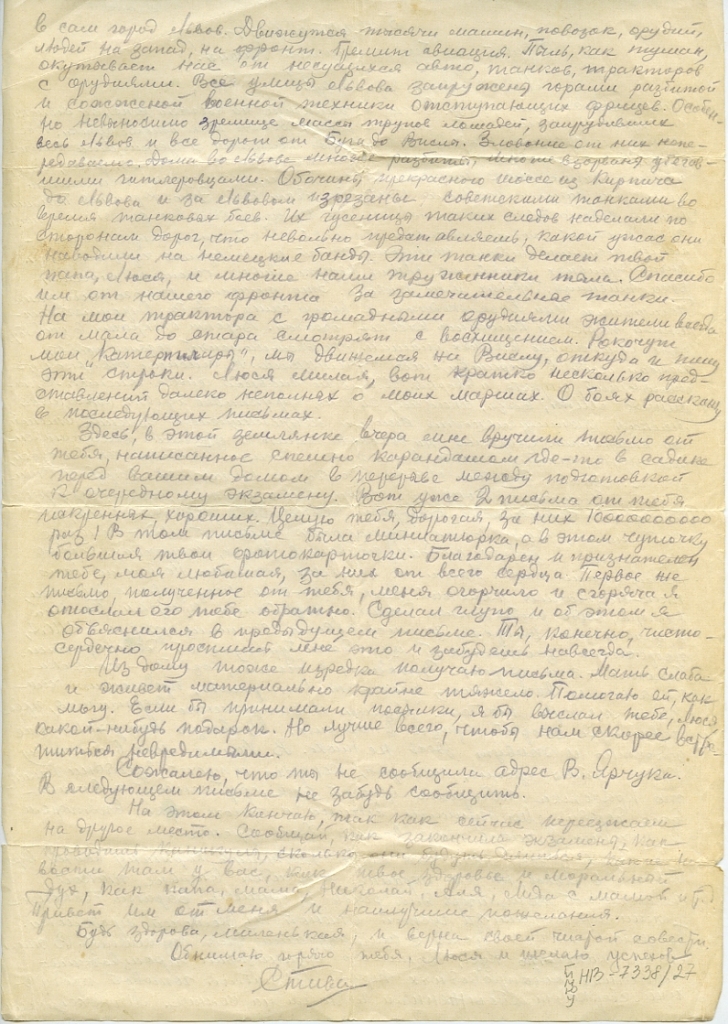 в сам город Львов. Движутся тысячи машин, повозок, орудий,
людей на запад, на фронт. Гремит авиация. Пыль, как туман,
окутывает нас от несущихся авто, танков, тракторов
с орудиями. Все улицы Львова загружены горами разбитой
и сожженой военной техники отступающих фрицев. Особен-
но невыносимо зрелище массы трупов лошадей, запрудивших
весь Львов и все дороги от Буга до Вислы. Зловоние от них непе-
редаваемо. Дома во Львове многие разбиты, многие взорваны убегав-
шими гитлеровцами. Обочины прекрасного шоссе из кирпича
до Львова и за Львовом изрезаны советскими танками во
время танковых боев. Их гусеницы таких следов наделали по
сторонам дорог, что невольно представляешь, какой ужас они
наводили на немецкие банды. Эти танки делает твой
папа, Люся, и многие наши труженники тыла. Спасибо
им от нашего фронта за замечательные танки.
На мои трактора с громадными орудиями жители всегда
от мала до стара смотрят с восхищением. Рокочут
мои "катерпиллеры", мы движемся на Вислу, откуда и пишу
эти строки. Люся милая, вот кратко несколько пред-
ставлений далеко неполных о моих маршах. О боях расскажу
в последующих письмах.
Здесь, в этой землянке вчера мне вручили письмо от
тебя, написанное спешно карандашом где-то в садике
перед вашим домом в перерыве между подготовкой
к очередному экзамену. Вот уже 2 письма от тебя
искренних, хороших. Целую тебя, дорогая, за них 10000000000
раз! В том письме была миниатюрка, а в этом чуточку
большая твои фотокарточки. Благодарен и признателен
тебе, моя любимая, за них от всего сердца. Первое же
письмо, полученное от тебя, меня огорчило и сгоряча я
отослал его тебе обратно. Сделал глупо и об этом я
объяснился в предыдущем письме. Ты, конечно, чисто-
сердечно простишь мне это и забудешь навсегда.
Из дому тоже изредка получаю письма. Мать слаба
и живет материально крайне тяжело. Помогаю ей, как
могу. Если бы принимали посылки, я бы выслал тебе, Люся
какой-нибудь подарок. Но лучше всего, чтобы нам скорее встре-
титься невредимыми.
Сожалею, что ты не сообщила адрес В. Ярчука.
В следующем письме не забудь сообщить.
На этом кончаю, так как сейчас переезжаем
на другое место. Сообщай, как закончила экзамены, как
сколько они будут
вости там у вас, как твое здоровье и моральный
дух, как папа, мама, Николай, Аля, Лида с мамой и т.д.
Привет им от меня и наилучшие пожелания.
Будь здорова, миленькая, и верна своей чистой совести.
Обнимаю крепко тебя, Люся и желаю успехов
НВ-7338/27